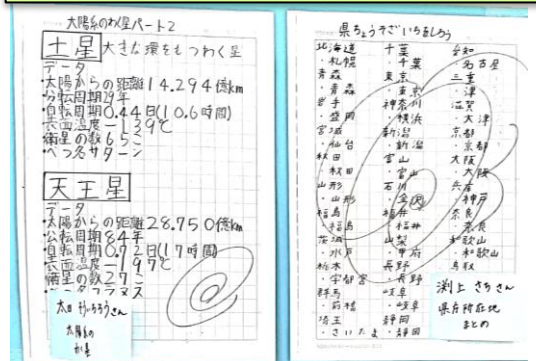 太陽系のわく星パート2
土星 大きな環をもつわく星
データ
・太陽からの距離14.294億km
・公転周期29年
・自転周期0.44日(10.6時間)
・表面温度−139℃
・衛星の数65こ
・べつ名サターン
天王星
データ
・太陽からの距離28.750億km
・公転周期84年
・自転周期0.72日(17時間)
・表面温度−197℃
・衛星の数27こ
太陽系の
わく星
県ちょうそざいちをしろう
北海道
・札幌
青森
・青森
岩手
・盛岡
宮城
・仙台
秋田
・秋田
山形
・山形
福島
・福島
茨城
・水戸
栃木
・宇都宮
群馬
・前橋
埼玉
・さいたま
千葉
・千葉
東京
・東京
神奈川
・横浜
新潟
・新潟
富山
・富山
石川
・金沢
福井
・福井
山梨
・甲府
長野
・長野
岐阜
・岐阜
静岡
・静岡
愛知
・名古屋
三重
・津
滋賀
・大津
京都
・京都
大阪
・大阪
兵庫
・神戸
奈良
・奈良
和歌山
・和歌山
鳥取
渕上 さちさん
県庁所在地
まとめ